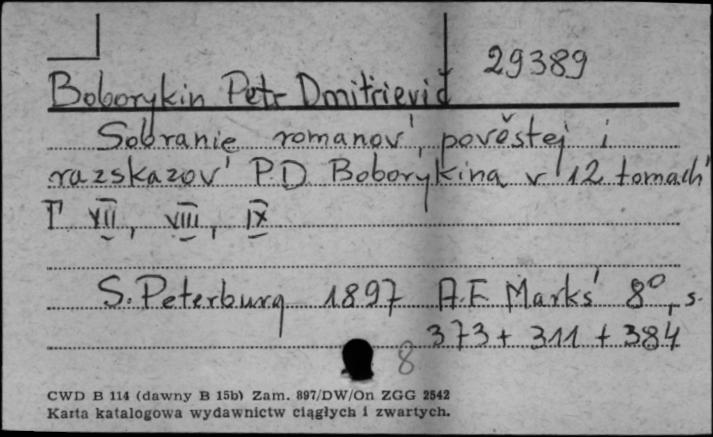 29389
Boborykin Petr Dmitrievič
Sobranie romanov', pověstej i
razskazov' P.D. Boborykina v 12 tomach'
T' VII, VIII, IX
S. Peterburg 1897 A.F. Marks' 8°, s.
373 + 311 + 384
8
CWD B 114 (dawny B 15b) Zam. 897/DW/On ZGG 2542
Karta katalogowa wydawnictw ciągłych i zwartych.